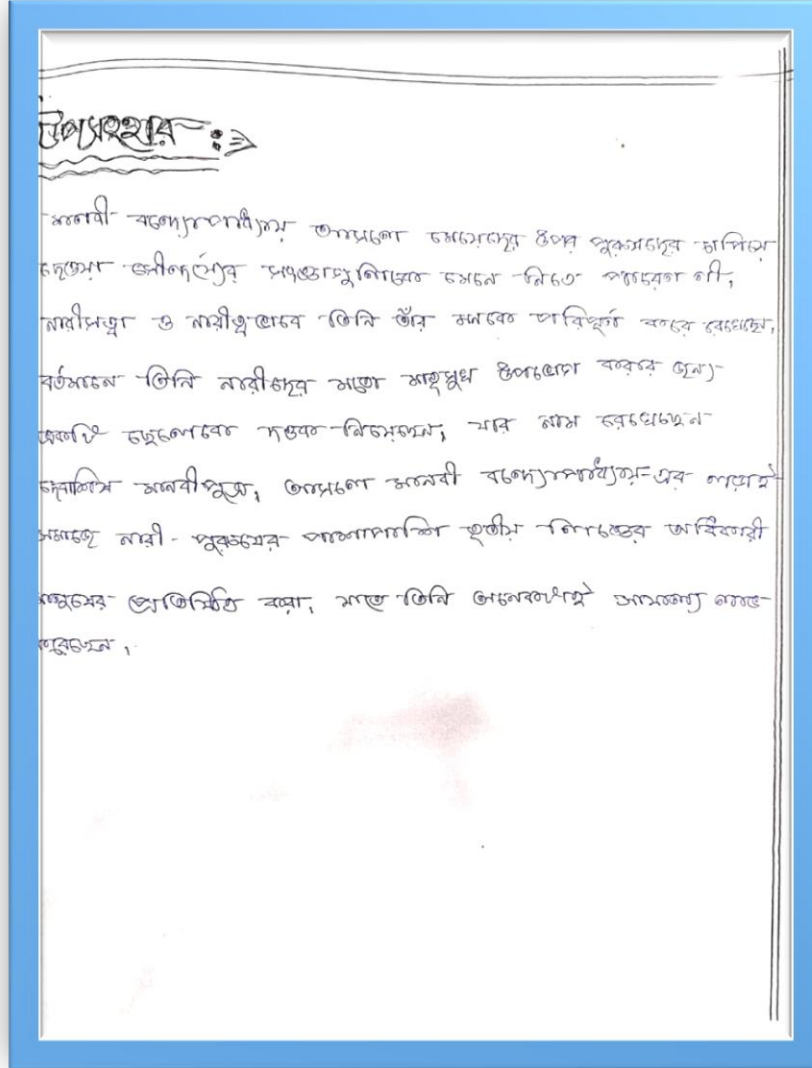 উপসংহার :⇒
মানবী বন্দ্যোপাধ্যায় আসলে মেয়েদের উপর পুরুষদের চাপিয়ে
দেওয়া সৌন্দর্য্যের সংজ্ঞাগুলিকে মেনে নিতে পারেন নী,
নারীসত্বা ও নারীত্বভাবে তিনি তাঁর মনকে পরিপূর্ণ করে রেখেছেন,
বর্তমানে তিনি নারীদের মতো মাতৃসুখ উপভোগ করার জন্য
একটি ছেলেকে দত্তক নিয়েছেন, যার নাম রেখেছেন
দেবাশিস মানবীপুত্র, আসলে মানবী বন্দ্যোপাধ্যায়-এর লড়াই
সমাজে নারী - পুরুষের পাশাপাশি তৃতীয় লিঙ্গের অধিকারী
মানুষের প্রতিষ্ঠিত করা, যাতে তিনি অনেকখানই সাফল্য লাভ
করেছেন,